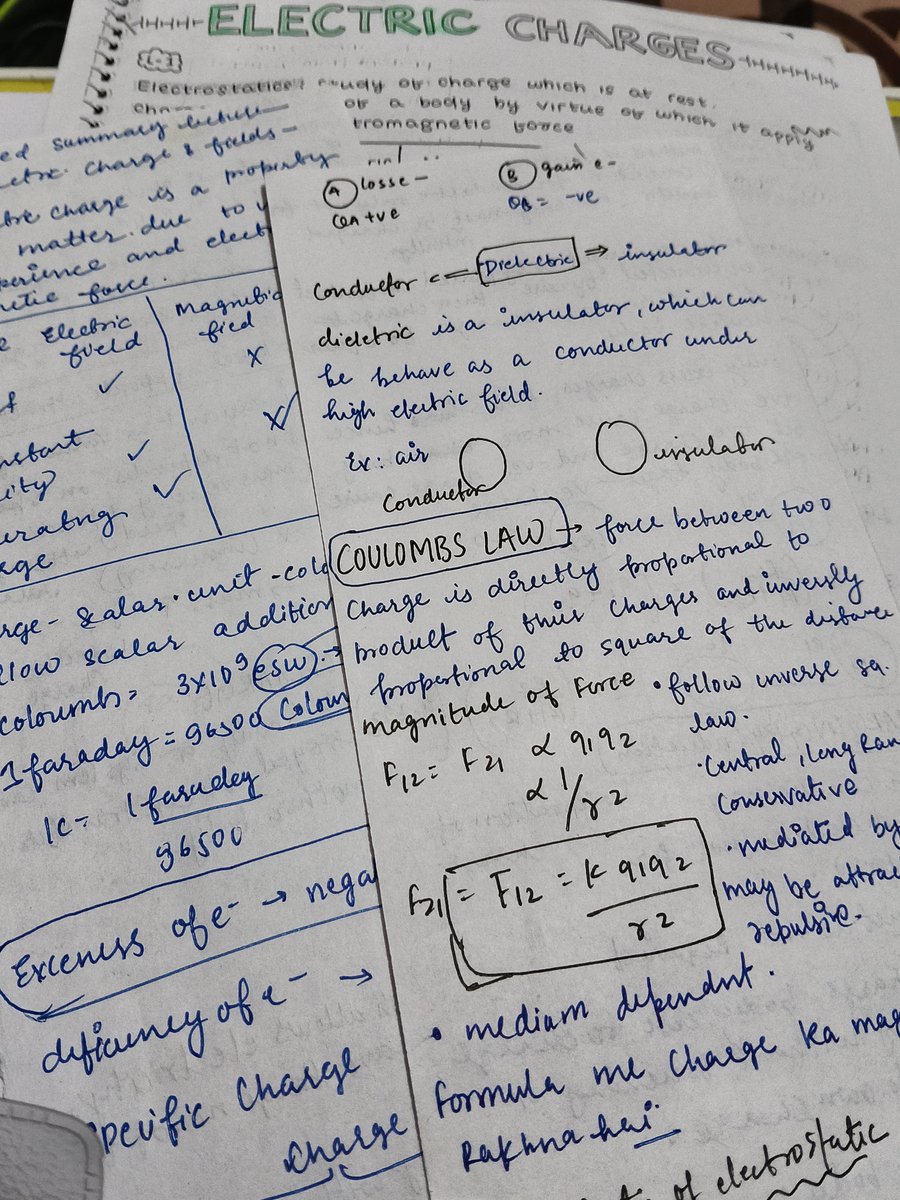 ELECTRIC CHARGES
Electrostatics: study of charge which is at rest.
of a body by virtue of which it apply
tromagnetic force
summary lecture
Charge & fields-
charge is a property
matter due to
perience and elect
netic force.
Electric field
Magnetic fied
✓ x
nstant
ity) ✓ ✓
✓
rge - Scalar. unit - colo
llow scalar addition
coloumb = 3x10^9 esu
1 faraday = 96500 Coloum
1c = 1 faraday
96500
Exceness of e- → nega
deficiency of e- →
pecific Charge
charge
(A) losse -
QA +ve
(B) gain e-
QB = -ve
Conductor <= Dielectric => insulator
dieletric is a insulator, which can
be behave as a conductor under
high electric field.
Ex: air
Conductor
insulator
COULOMBS LAW → force between two
Charge is directly propotional to
product of their Charges and inversly
propertional to square of the distance
magnitude of Force
F12 = F21 α q1q2
α 1/r2
F21 = F12 = K q1q2
r2
• follow inverse sq.
law.
• Central, Long Ran
Conservative
• mediated by
may be attrac
repulsive.
• medium dependnt.
Formula me Charge ka mag
Rakhna hai
of electrostatic